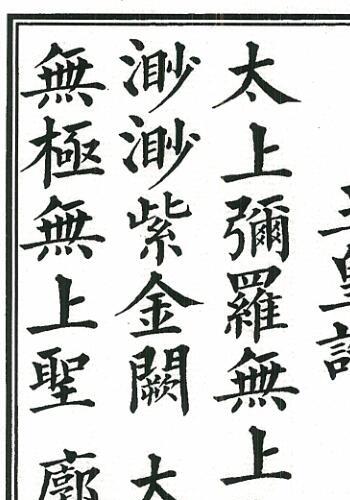 玉皇誥
太上彌羅無上
渺渺紫金闕 太
無極無上聖 廓